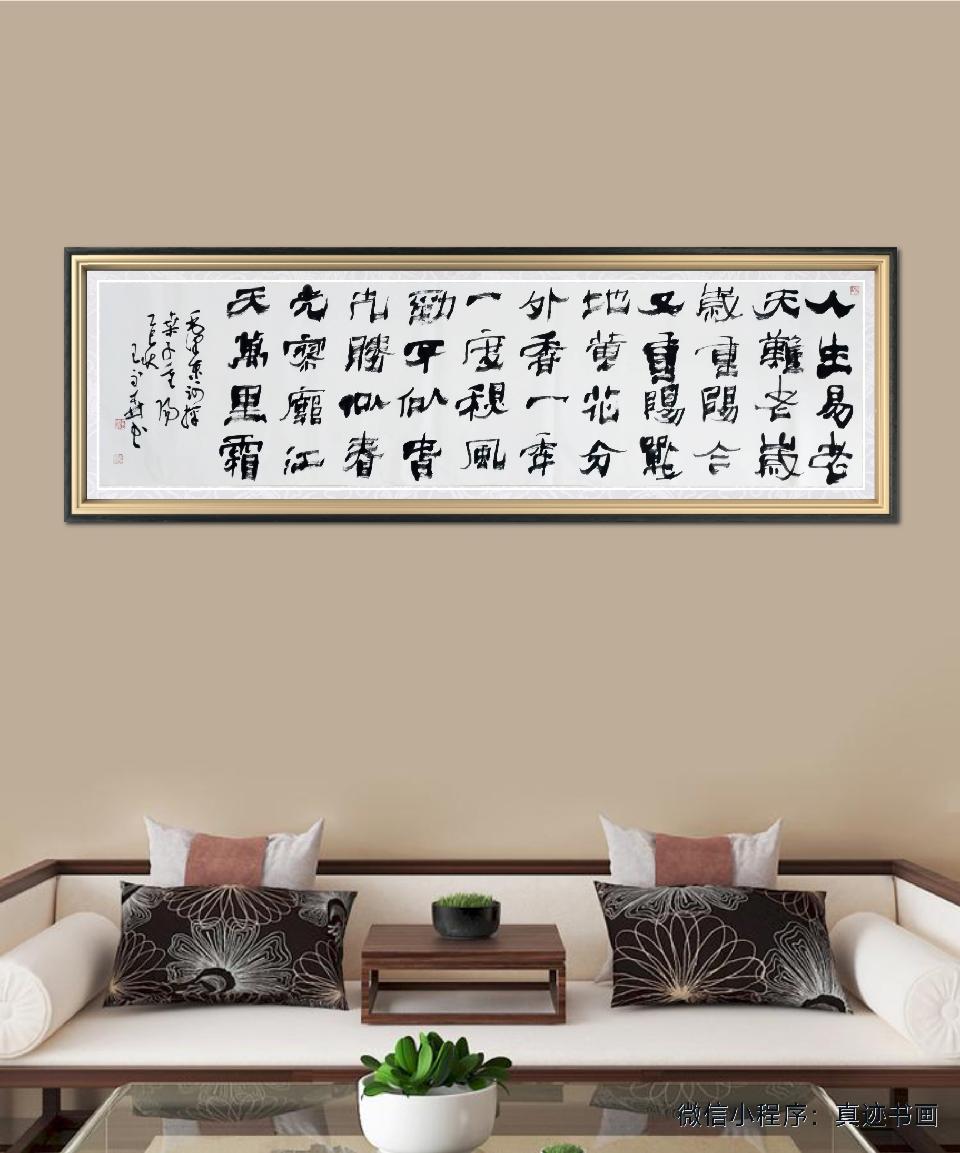 人生易老
天難老歲
歲重陽今
又重陽戰
地黄花分
外香一年
一度秋風
勁不似春
光勝似春
光寥廓江
天萬里霜
毛澤東詞採
桑子重陽
微信小程序：真迹书画